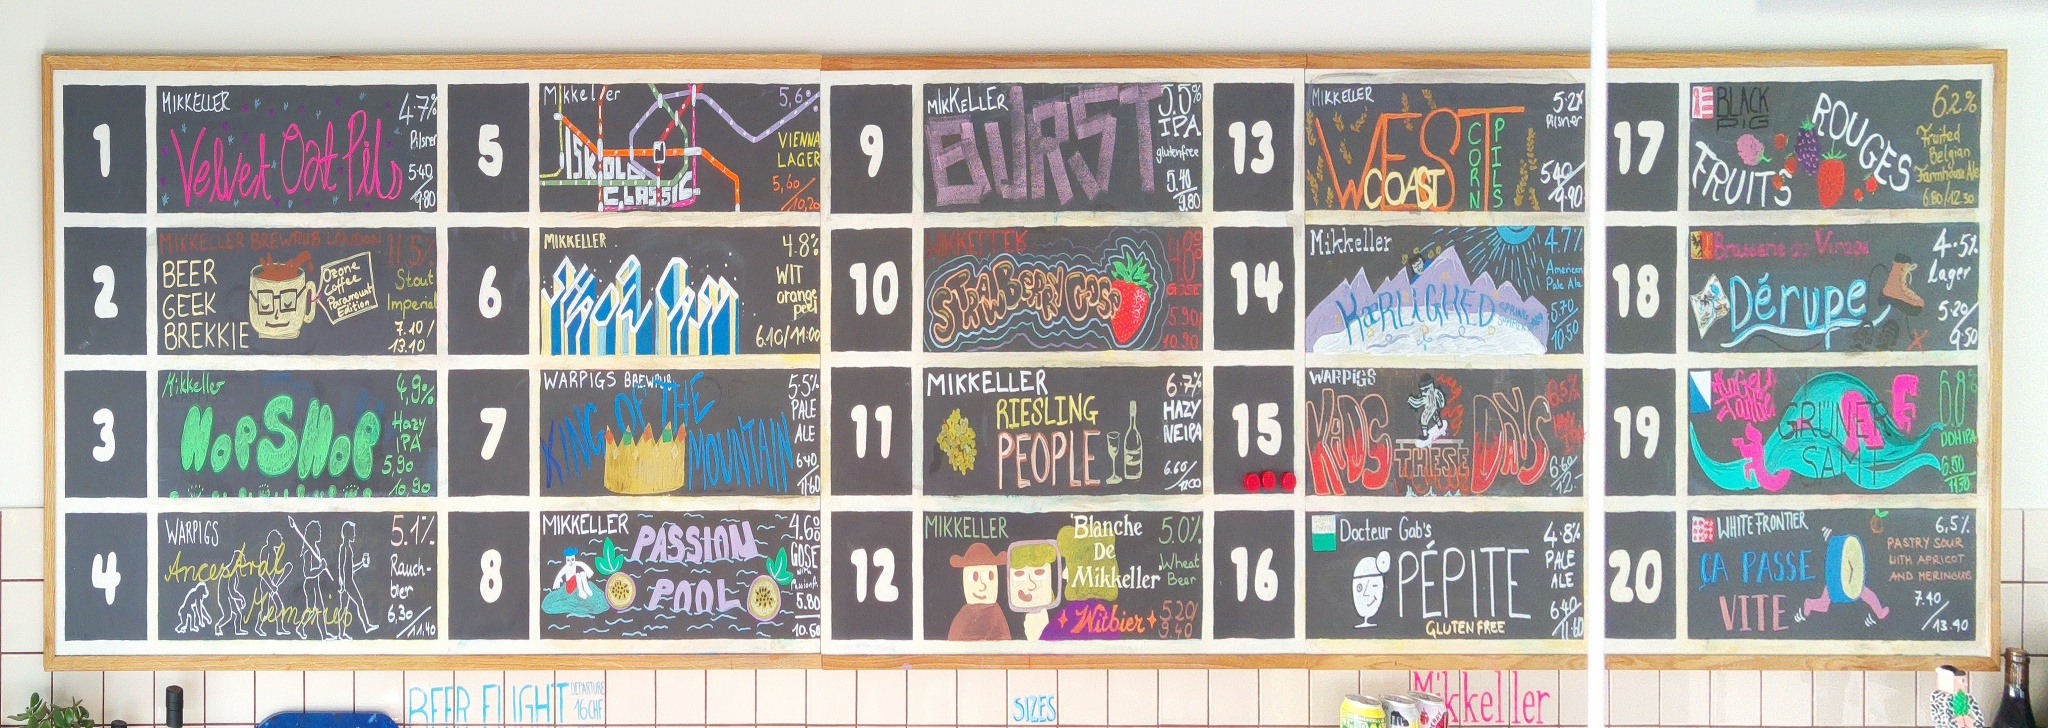 1
MIKKELLER
4.7%
Velvet Oat Pils
Pilsner
5.40/
9.80
2
MIKKELLER BREWPUB LONDON
11.5%
BEER
GEEK
BREKKIE
Ozone
Coffee
Paramount
Edition
Stout
Imperial
7.10/
13.10
3
Mikkeller
4,9%
HOP SHOP
Hazy
IPA
5,90
10,90
4
WARPIGS
5.1%
Ancestral
Memories
Rauch-
bier
6,30/
11,40
5
Mikkeller
5,6%
VIENNA
LAGER
CLASSIC
5,60/
10,20
6
MIKKELLER
4.8%
WIT
orange
peel
6.10/11.00
7
WARPIGS BREWPUB
5.5%
KING OF THE
MOUNTAIN
PALE
ALE
6.40/
11.60
8
MIKKELLER
4.6%
PASSION
POOL
GOSE
5.80
10.60
9
MIKKELLER
BURST
IPA
glutenfree
5.40/
9.80
10
MIKKELLER
4.8%
STRAWBERRY GOSE
GOSE
5.90/
10.90
11
MIKKELLER
6.7%
RIESLING
PEOPLE
HAZY
NEIPA
6.60/
12.00
12
MIKKELLER
5.0%
Blanche
De
Mikkeller
Wheat
Beer
Witbier
5.20
9.40
13
MIKKELLER
5.2%
Pilsner
WEST
COAST
CORN
PILS
5.40/
9.90
14
Mikkeller
4.7%
American
Pale Ale
KÆRLIGHED
5.70
10.50
15
WARPIGS
6.5%
KIDS
THESE
DAYS
6.60/
12.-
16
Docteur Gab's
4.8%
PÉPITE
PALE
ALE
GLUTEN FREE
6.40/
11.60
17
BLACK
PIG
6.2%
FRUITS
ROUGES
Fruited
Belgian
Farmhouse Ale
6.80/12.50
18
4.5%
Dérupe
Lager
5.20/
9.50
19
6.8%
GRÜNER
SAMT
DDH IPA
6.50
11.50
20
WHITE FRONTIER
6,5%
ÇA PASSE
VITE
PASTRY SOUR
WITH APRICOT
AND MERINGUE
7.40
/13.40
BEER FLIGHT
DEPARTURE
16CHF
SIZES
Mikkeller